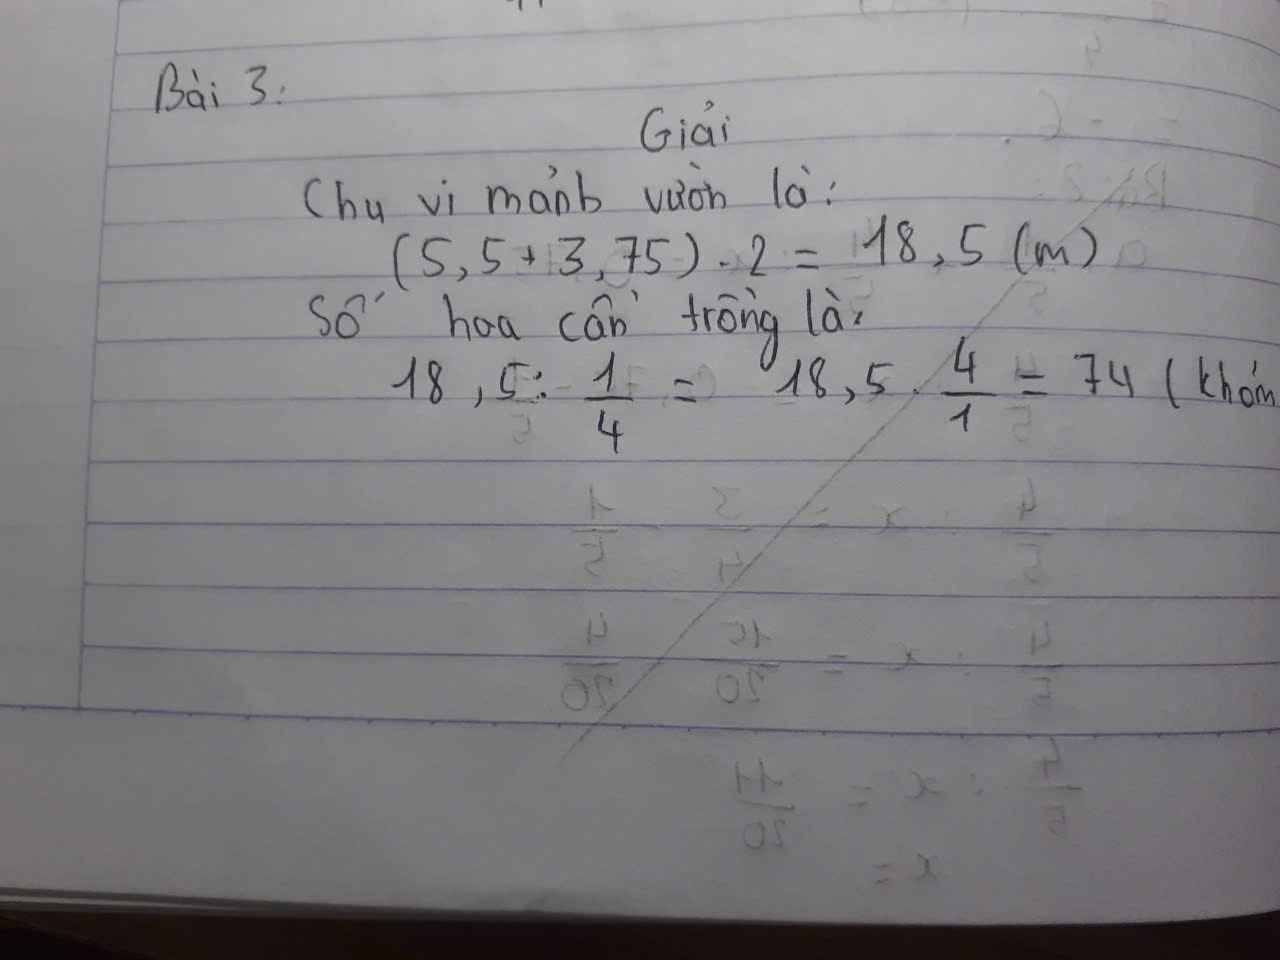 Bài 3:
Giải
Chu vi mảnh vườn là:
(5,5 + 3,75) . 2 = 18,5 (m)
Số hoa cần trồng là:
18,5 : 1/4 = 18,5 . 4/1 = 74 (khóm